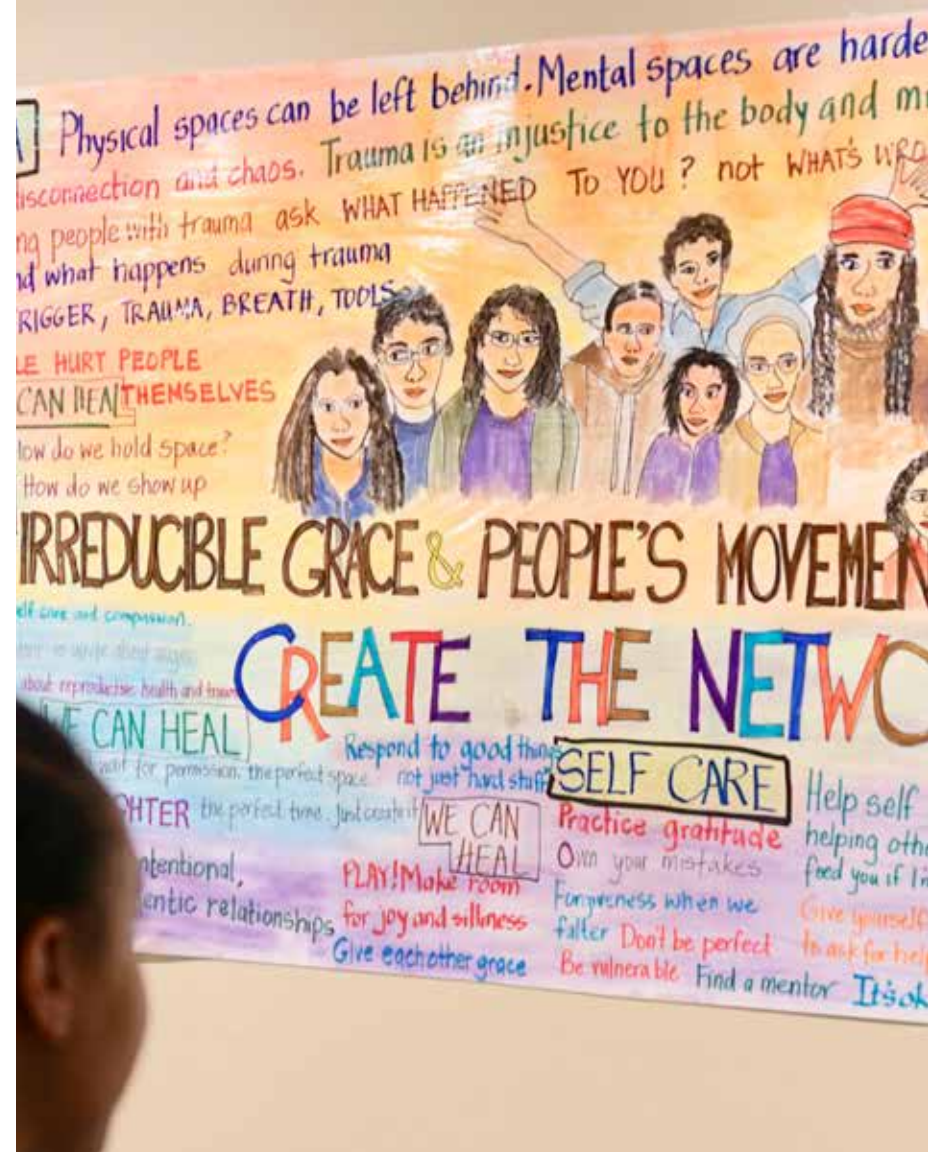 Physical spaces can be left behind. Mental spaces are harde
isconnection and chaos. Trauma is an injustice to the body and mi
ng people with trauma ask WHAT HAPPENED TO YOU? not WHAT'S WRO
nd what happens during trauma
RIGGER, TRAUMA, BREATH, TOOLS
LE HURT PEOPLE
CAN HEAL THEMSELVES
How do we hold space?
How do we show up
IRREDUCIBLE GRACE & PEOPLE'S MOVEMEN
elf care and compassion.
about reproductive health and
CREATE THE NETWO
WE CAN HEAL
Respond to good things
not just hard stuff
wait for permission, the perfect space
HTER the perfect time. Just create it
WE CAN
HEAL
ntentional,
entic relationships
PLAY! Make room
for joy and silliness
Give each other grace
SELF CARE
Practice gratitude
Own your mistakes
Forgiveness when we
falter Don't be perfect
Be vulnerable Find a mentor It's ok
Help self
helping othe
feed you if I'm
Give yourself
to ask for help